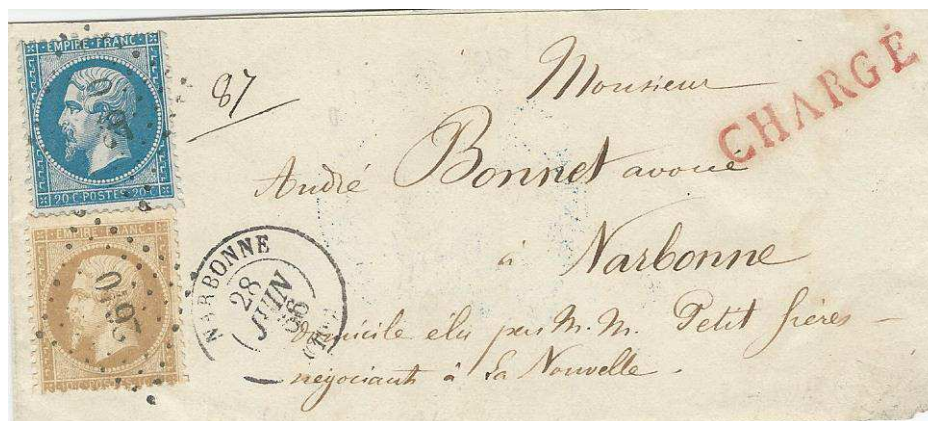 EMPIRE FRANC
20 C POSTE 20 C
EMPIRE FRANC
87
Monsieur
CHARGÉ
André Bonnet avoué
à Narbonne
NARBONNE
28
JUIN
66
Domicile élu par M. M. Petit frères
négociants à La Nouvelle.